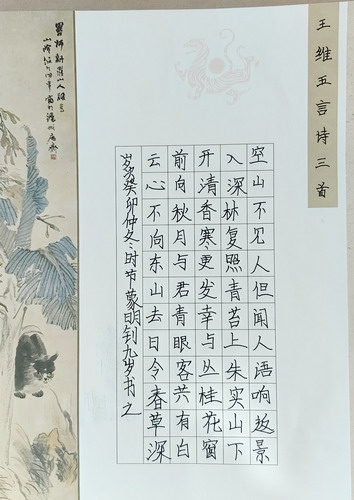 王维五言诗三首
空山不见人但闻人语响返景
入深林复照青苔上朱实山下
开清香寒更发幸与丛桂花窗
前向秋月与君青眼客共有白
云心不向东山去日令春草深
岁次癸卯仲冬时节蒙明钊九岁书之